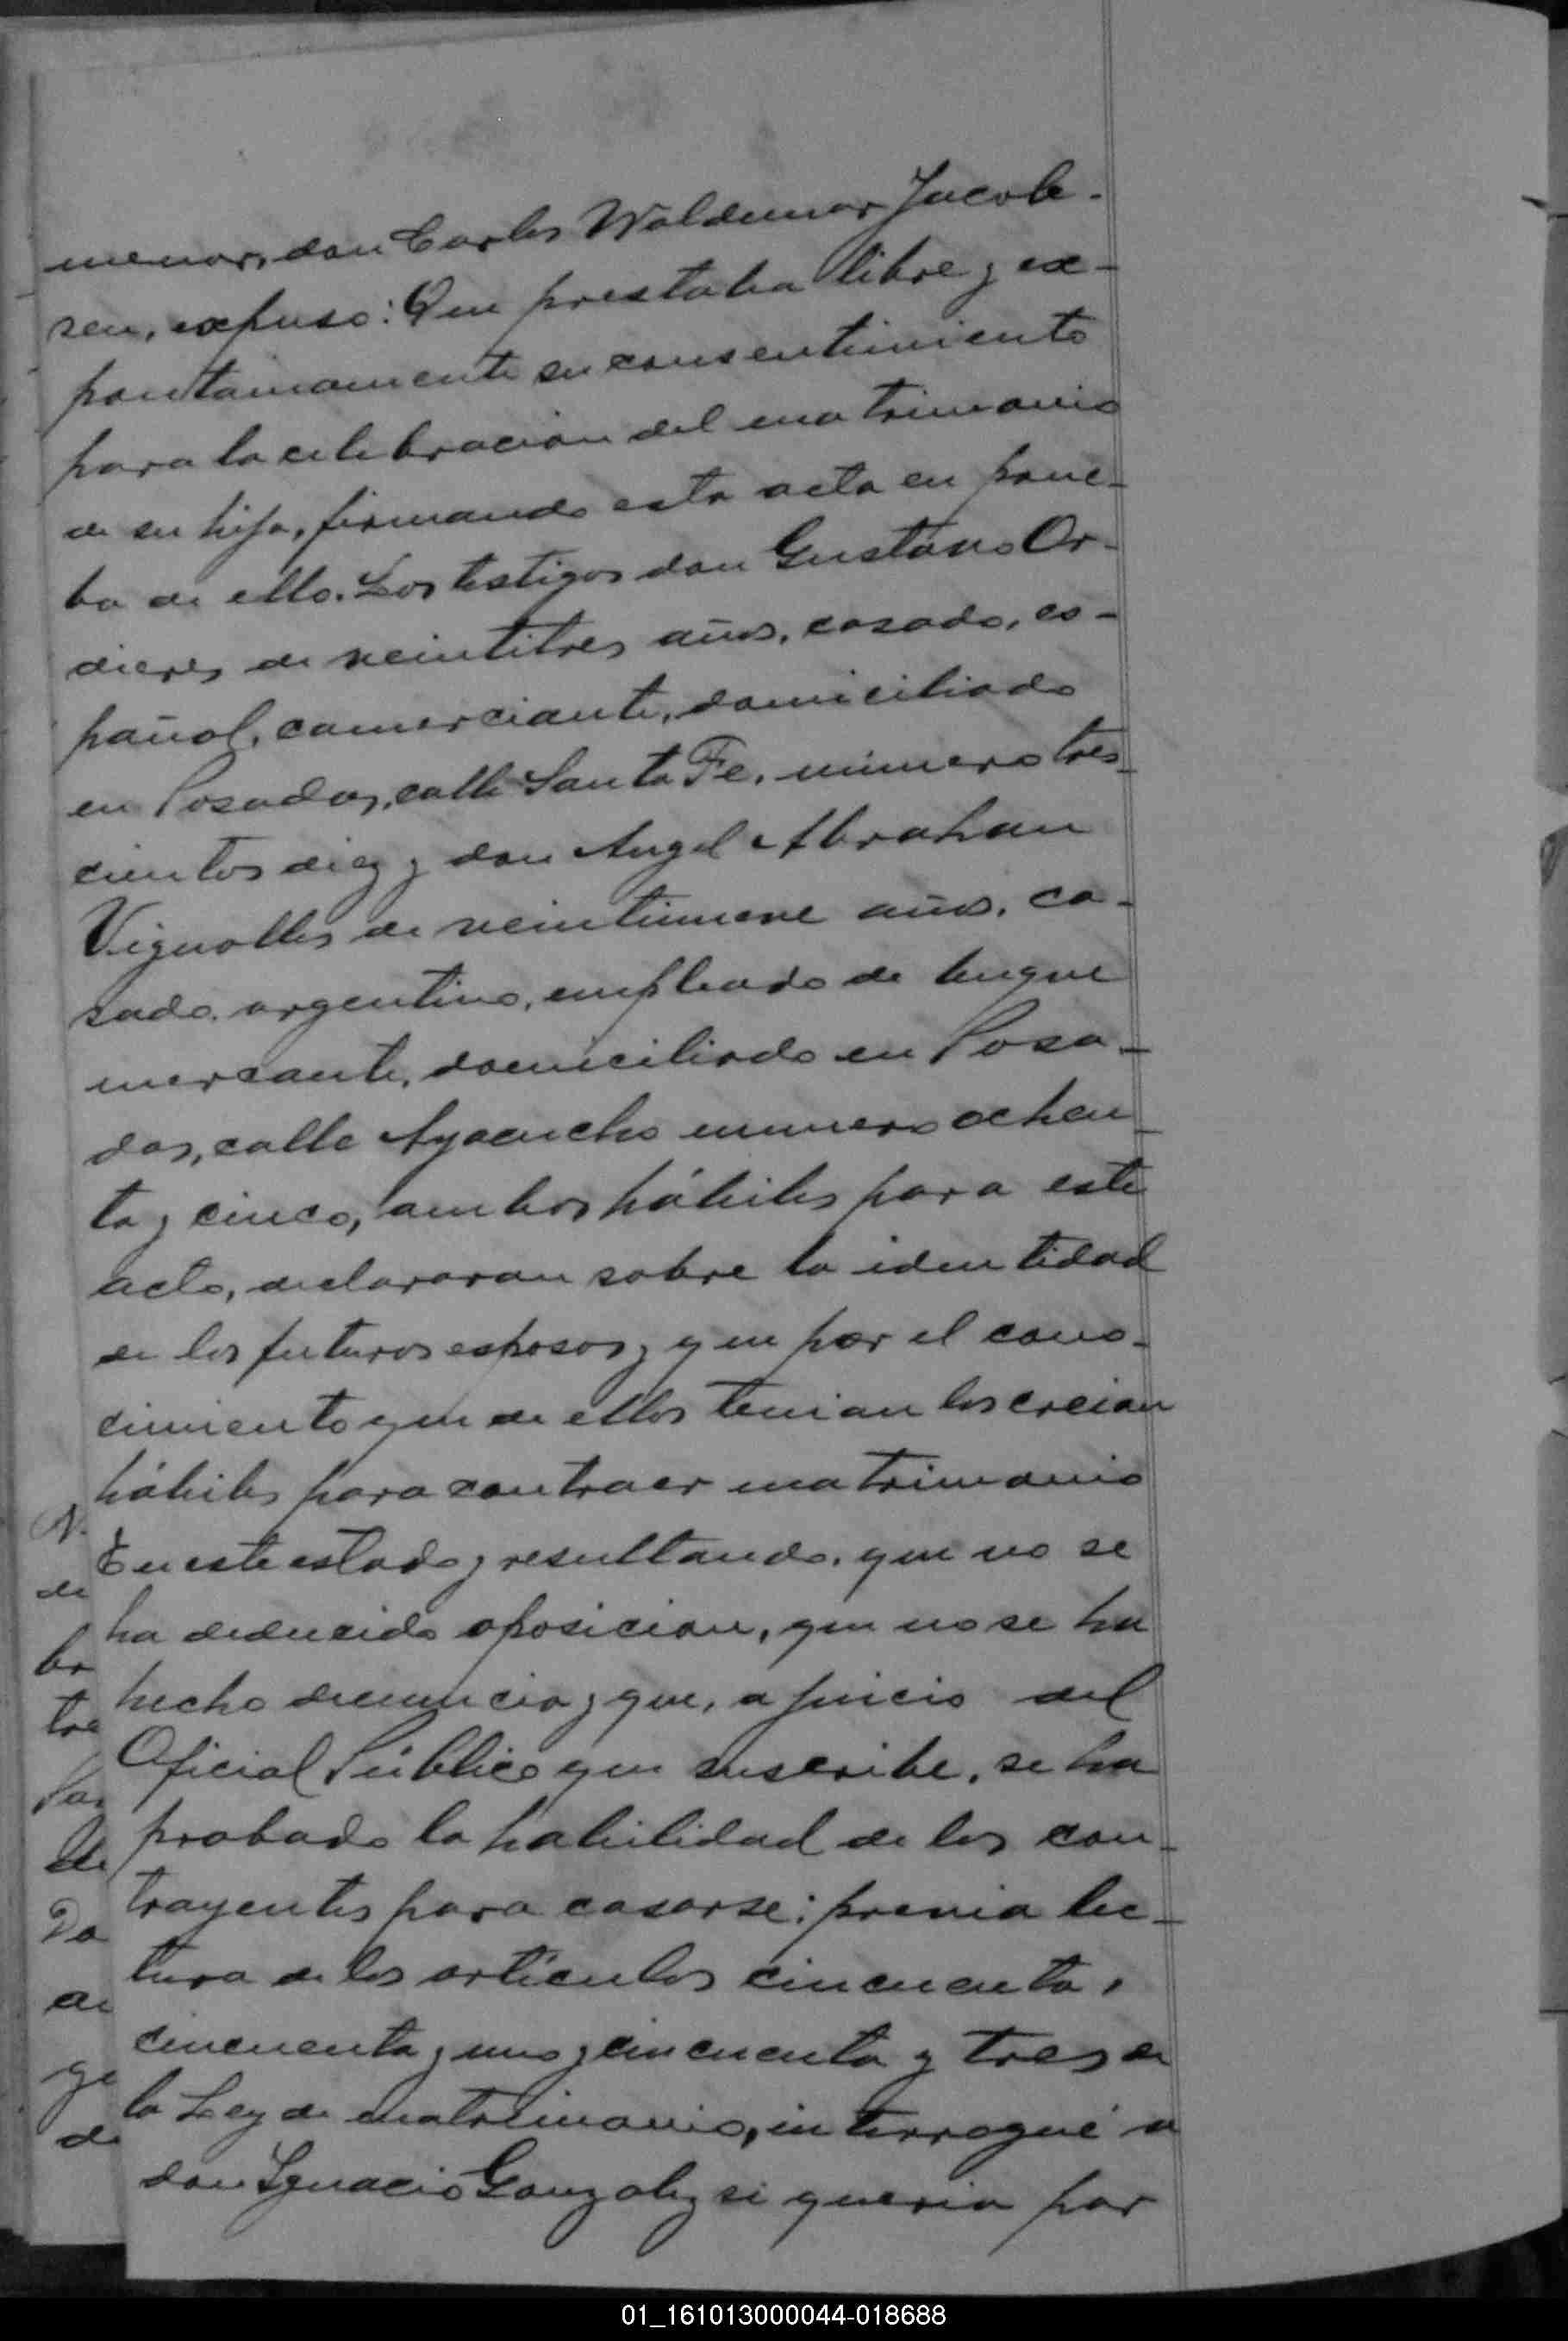 menor, don Carlos Waldemar Jacob-
sen, expuso: Que prestaba libre y ex-
pontaniamente su consentimiento
para la celebracion del matrimonio
de su hija, firmando esta acta en prue-
ba de ello. Los testigos don Gustavo Or-
dieres de veintitres años, casado, es-
pañol, comerciante, domiciliado
en Posadas, calle Santa Fe, número tres-
cientos diez y don Angel Abrahan
Vignolles de veintinueve años, ca-
sado, argentino, empleado de buque
mercante, domiciliado en Posa-
das, calle Ayacucho numero ochen-
ta y cinco, ambos hábiles para este
acto, declararan sobre la identidad
de los futuros esposos y que por el cono-
cimiento que de ellos tenian los creian
hábiles para contraer matrimonio
En este estado y resultando, que no se
ha deducido oposicion, que no se ha
hecho denuncia y que, a juicio del
Oficial Público que suscribe, se ha
probado la habilidad de los con-
trayentes para casarse; previa lec-
tura de los artículos cincuenta,
cincuenta y uno y cincuenta y tres de
la Ley de matrimonio, interrogué a
don Ignacio Gonzalez si queria por
N.
de
br
tre
Pas
de
Da
de
ge
de
01_161013000044-018688